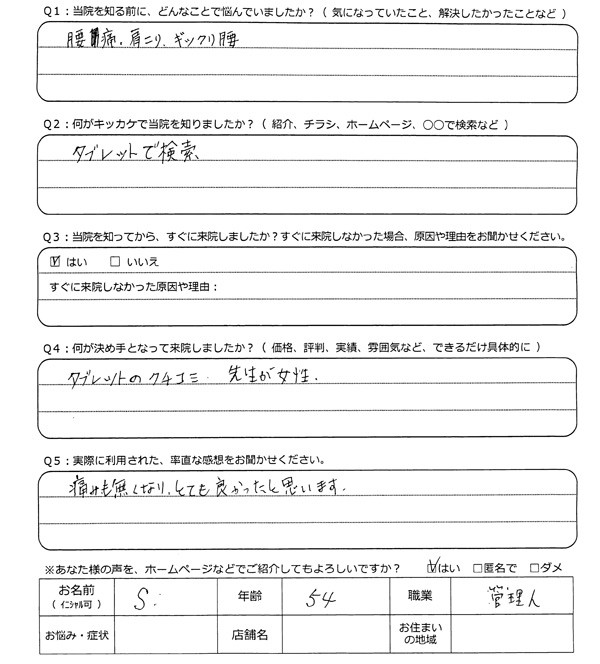 Q1：当院を知る前に、どんなことで悩んでいましたか？（ 気になっていたこと、解決したかったことなど ）
腰痛．肩こり．ギックリ腰
Q2：何がキッカケで当院を知りましたか？（ 紹介、チラシ、ホームページ、〇〇で検索など ）
タブレットで検索
Q3：当院を知ってから、すぐに来院しましたか？すぐに来院しなかった場合、原因や理由をお聞かせください。
☑ はい　□ いいえ
すぐに来院しなかった原因や理由：
Q4：何が決め手となって来院しましたか？（ 価格、評判、実績、雰囲気など、できるだけ具体的に ）
タブレットのクチコミ．先生が女性．
Q5：実際に利用された、率直な感想をお聞かせください。
痛みも無くなり、とても良かったと思います．
※あなた様の声を、ホームページなどでご紹介してもよろしいですか？　☑はい　□匿名で　□ダメ
お名前　S.　年齢　54　職業　管理人
（ｲﾆｼｬﾙ可）
お悩み・症状　店舗名　お住まい
の地域